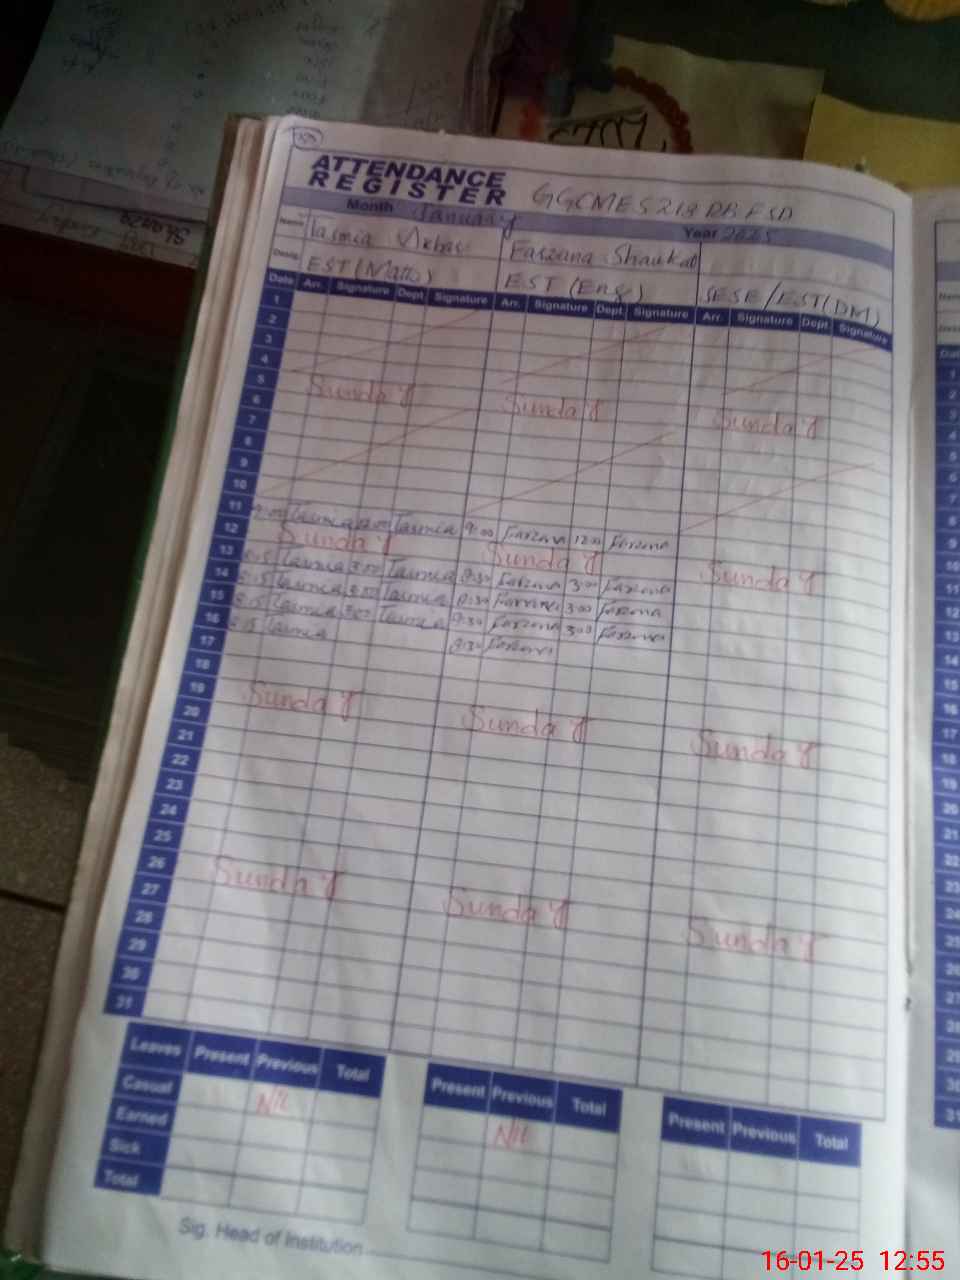 ATTENDANCE
REGISTER GGCMES 218 RB FSD
Month January Year 2025
Name Tasmia Akbar Farzana Shaukat
Desig. EST (Math) EST (Eng) SESE/EST (DM)
Date Arr. Signature Dept. Signature Arr. Signature Dept. Signature Arr. Signature Dept. Signature
1
2
3
4
5 Sunday Sunday Sunday
6
7
8
9
10
11 9:00 Tasmia 12:00 Tasmia 9:00 Farzana 12:00 Farzana
12 Sunday Sunday Sunday
13 8:15 Tasmia 3:00 Tasmia 8:30 Farzana 3:00 Farzana
14 8:15 Tasmia 3:00 Tasmia 8:30 Farzana 3:00 Farzana
15 8:15 Tasmia 3:00 Tasmia 8:30 Farzana 3:00 Farzana
16 8:15 Tasmia 8:30 Farzana
17
18
19 Sunday Sunday Sunday
20
21
22
23
24
25
26 Sunday Sunday Sunday
27
28
29
30
31
Leaves Present Previous Total Present Previous Total Present Previous Total
Casual Nil Nil
Earned
Sick
Total
Sig. Head of Institution
16-01-25 12:55